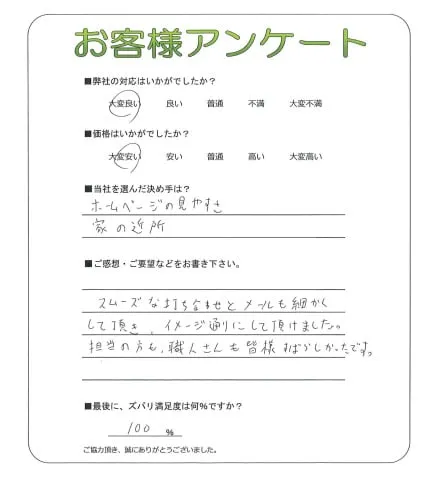 お客様アンケート
■弊社の対応はいかがでしたか？
大変良い 良い 普通 不満 大変不満
■価格はいかがでしたか？
大変安い 安い 普通 高い 大変高い
■当社を選んだ決め手は？
ホームページの見やすさ
家の近所
■ご感想・ご要望などをお書き下さい。
スムーズな打ち合わせとメールも細かく
して頂き、イメージ通りにして頂けました。
担当の方も、職人さんも皆様すばらしかったです。
■最後に、ズバリ満足度は何％ですか？
100 ％
ご協力頂き、誠にありがとうございました。